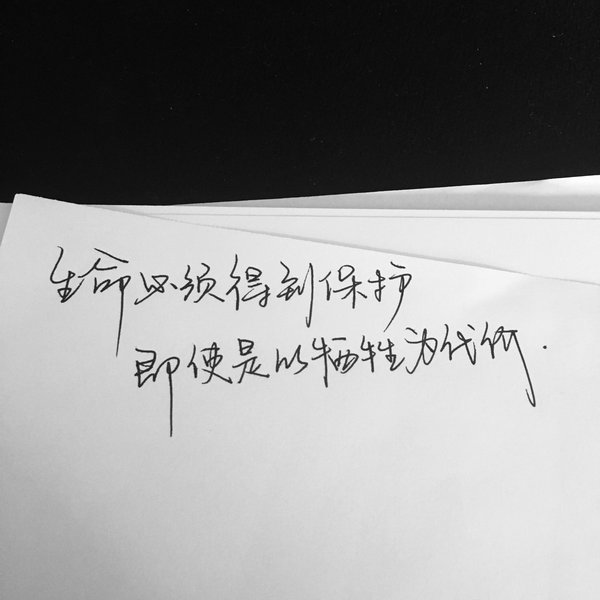 生命必须得到保护
即使是以牺牲为代价.